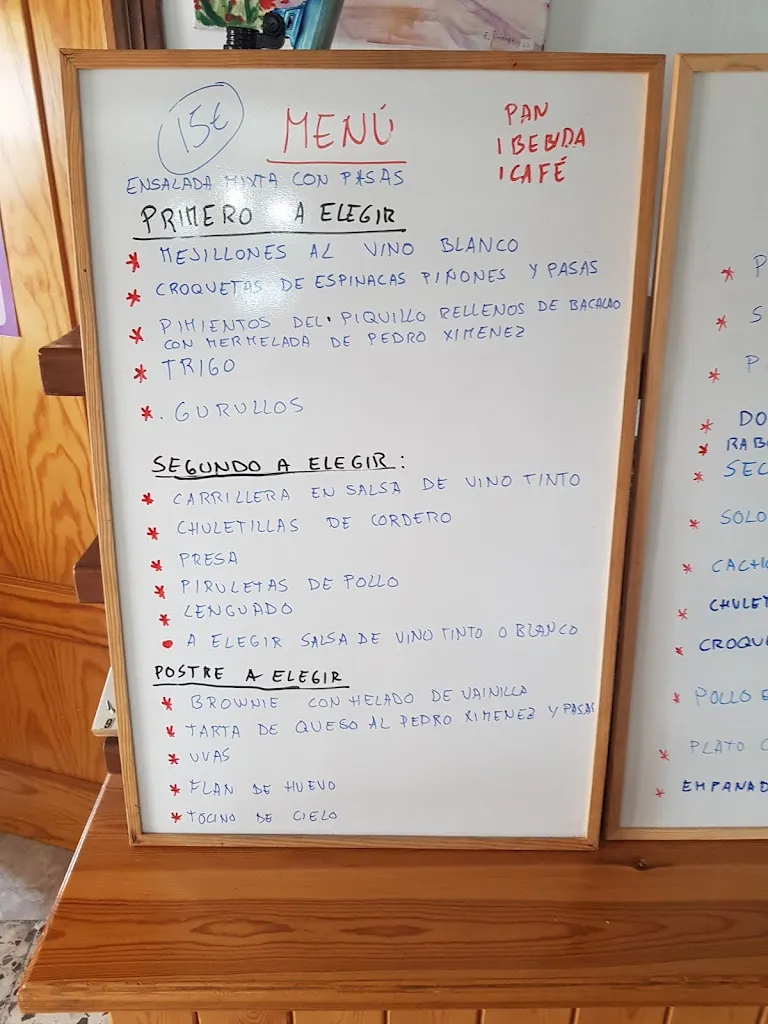 15€
MENÚ
PAN
1 BEBIDA
1 CAFÉ
ENSALADA MIXTA CON PASAS
PRIMERO A ELEGIR
* MEJILLONES AL VINO BLANCO
* CROQUETAS DE ESPINACAS PIÑONES Y PASAS
* PIMIENTOS DEL PIQUILLO RELLENOS DE BACALAO
CON MERMELADA DE PEDRO XIMENEZ
* TRIGO
* GURULLOS
SEGUNDO A ELEGIR:
* CARRILLERA EN SALSA DE VINO TINTO
* CHULETILLAS DE CORDERO
* PRESA
* PIRULETAS DE POLLO
* LENGUADO
• A ELEGIR SALSA DE VINO TINTO O BLANCO
POSTRE A ELEGIR
* BROWNIE CON HELADO DE VAINILLA
* TARTA DE QUESO AL PEDRO XIMENEZ Y PASAS
* UVAS
* FLAN DE HUEVO
* TOCINO DE CIELO
* P
* S
* P
* DO
* RAB
* SEC
* SOLO
* CACHO
* CHULET
* CROQUE
* POLLO
* PLATO
* EMPANAD